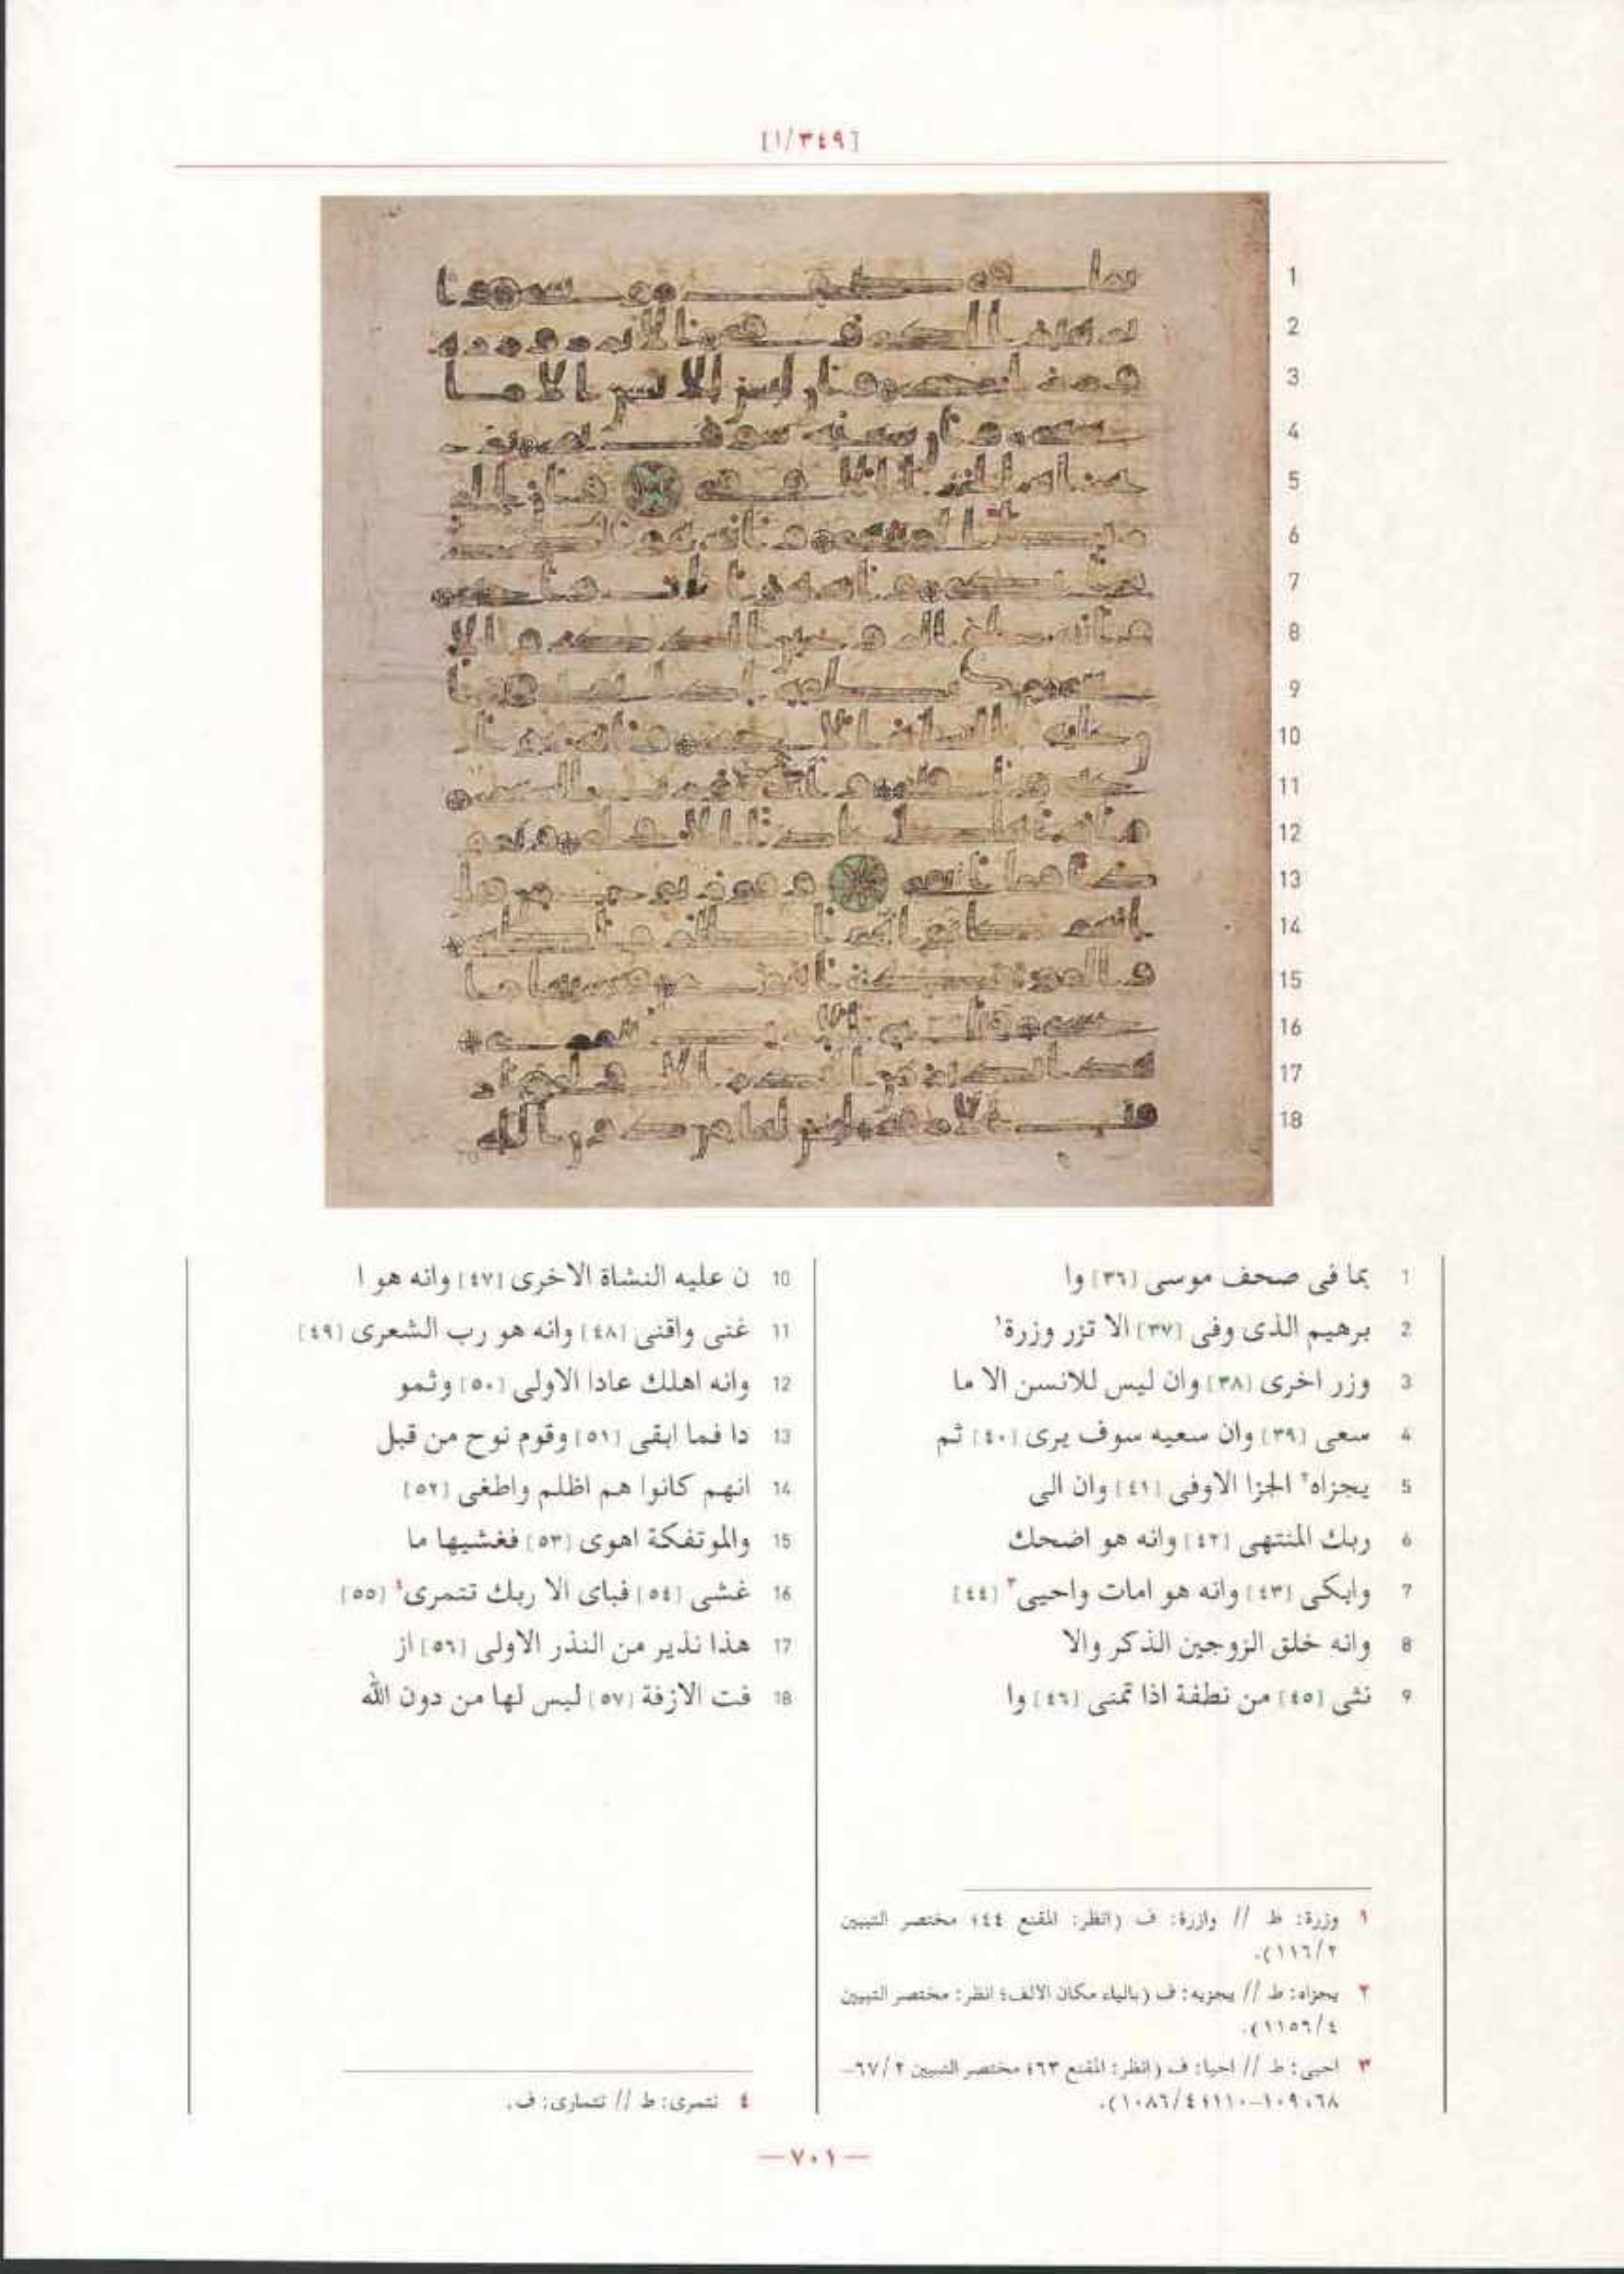 [١/٣٤٩]
1
2
3
4
5
6
7
8
9
10
11
12
13
14
15
16
17
18
1 بما فى صحف موسى [٣٦] وا
2 برهيم الذى وفى [٣٧] الا تزر وزرة١
3 وزر اخرى [٣٨] وان ليس للانسن الا ما
4 سعى [٣٩] وان سعيه سوف يرى [٤٠] ثم
5 يجزاه٢ الجزا الاوفى [٤١] وان الى
6 ربك المنتهى [٤٢] وانه هو اضحك
7 وابكى [٤٣] وانه هو امات واحيى٣ [٤٤]
8 وانه خلق الزوجين الذكر والا
9 نثى [٤٥] من نطفة اذا تمنى [٤٦] وا
10 ن عليه النشاة الاخرى [٤٧] وانه هو ا
11 غنى واقنى [٤٨] وانه هو رب الشعرى [٤٩]
12 وانه اهلك عادا الاولى [٥٠] وثمو
13 دا فما ابقى [٥١] وقوم نوح من قبل
14 انهم كانوا هم اظلم واطغى [٥٢]
15 والموتفكة اهوى [٥٣] فغشيها ما
16 غشى [٥٤] فباى الا ربك تتمرى٤ [٥٥]
17 هذا نذير من النذر الاولى [٥٦] از
18 فت الازفة [٥٧] ليس لها من دون الله
١ وزرة: ط // وازرة: ف (انظر: المقنع ٤٤؛ مختصر التبيين
٢/١١٦).
٢ يجزاه: ط // يجزيه: ف (بالياء مكان الالف؛ انظر: مختصر التبيين
٤/١١٥٦).
٣ احيى: ط // احيا: ف (انظر: المقنع ٦٣؛ مختصر التبيين ٢/٦٧–
٦٨، ١٠٩–١١٠؛ ٤/١٠٨٦).
٤ تتمرى: ط // تتمارى: ف.
—٧٠١—